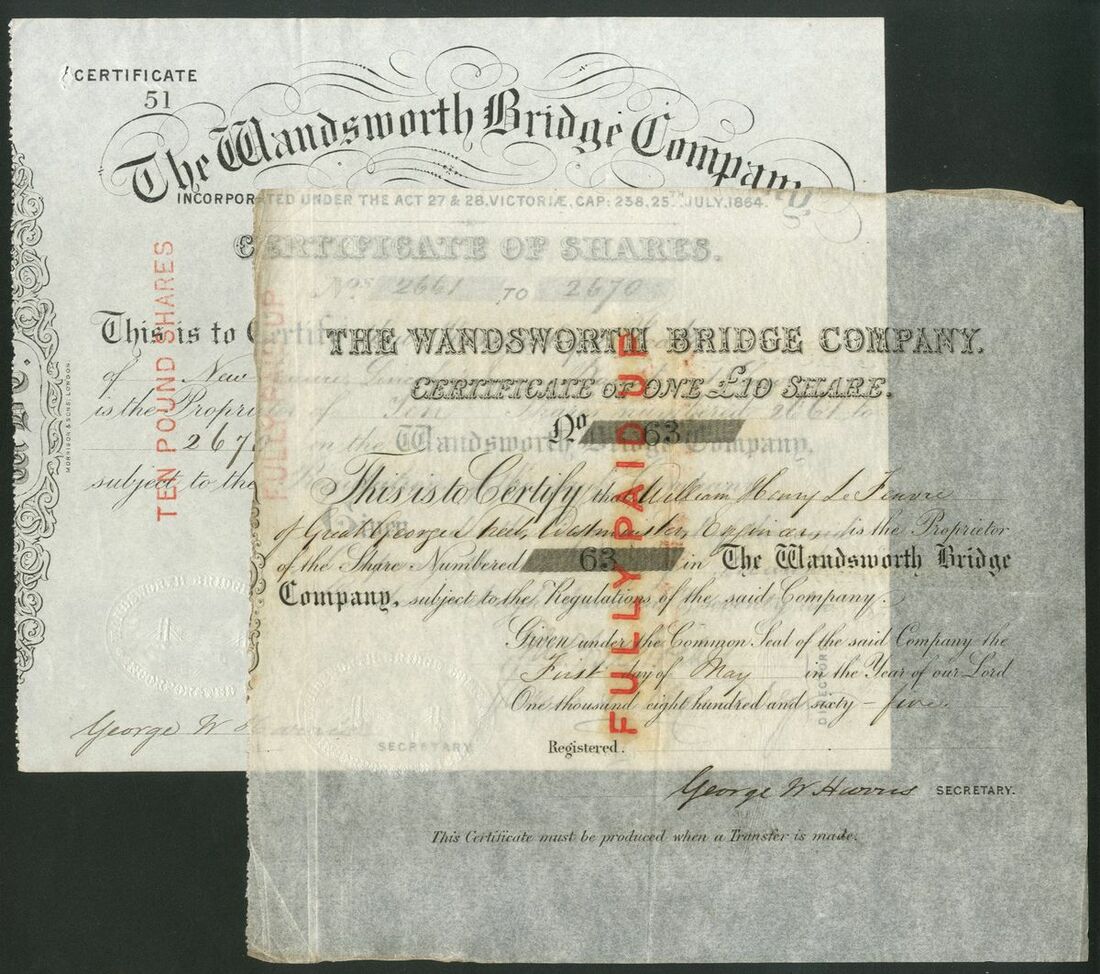 CERTIFICATE
51
The Wandsworth Bridge Company
INCORPORATED UNDER THE ACT 27 & 28. VICTORIÆ, CAP: 238, 25TH JULY, 1864.
CERTIFICATE OF SHARES.
Nos 2661 TO 2670
This is to Certify
of New
is the Proprietor of Ten Shares numbered 2661 to
2670 in the Wandsworth Bridge Company,
subject to the
Given
TEN POUND SHARES
FULLY PAID UP
MORRISON & SONS, LONDON
WANDSWORTH BRIDGE
INCORPORATED
DIRECTORS
George W Harris
SECRETARY
THE WANDSWORTH BRIDGE COMPANY.
CERTIFICATE OF ONE £10 SHARE.
No 63
This is to Certify that William Henry Le Feuvre
of Great George Street, Westminster, Engineer is the Proprietor
of the Share Numbered 63 in The Wandsworth Bridge
Company, subject to the Regulations of the said Company.
Given under the Common Seal of the said Company the
First day of May in the Year of our Lord
One thousand eight hundred and sixty – five.
FULLY PAID UP
Registered.
George W Harris SECRETARY.
This Certificate must be produced when a Transfer is made.